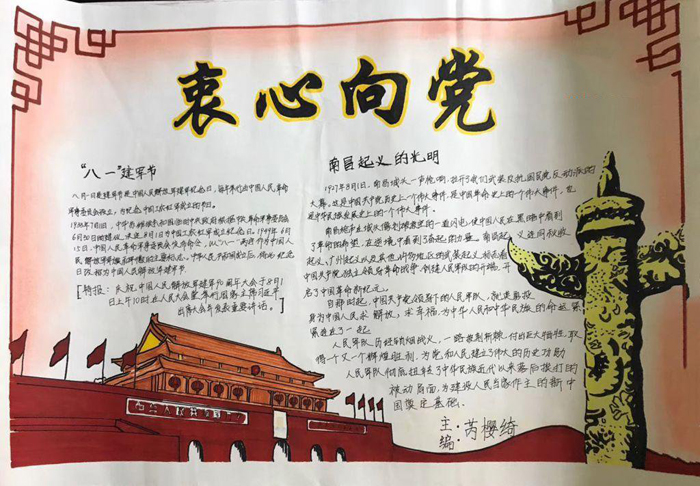 衷心向党
"八一"建军节
八月一日建军节是中国人民解放军建军纪念日，每年八月一日由中国人民革命
军事委员会设立，为纪念中国工农红军成立的节日。
6月30日的建议，决定8月1日为中国工农红军成立纪念日。1949年6月
15日，中国人民革命军事委员会发布命令，以"八一"两字作为中国人
民解放军军旗和军徽的主要标志。中华人民共和国成立后，将此纪念
日改称为中国人民解放军建军节。
[特报：庆祝中国人民解放军建军90周年大会于8月1
日上午10时在人民大会堂举行国家主席习近平
出席大会并发表重要讲话。]
南昌起义的光明
1927年8月1日，南昌城头一声枪响，拉开了我们武装反抗国民党反动派的
大幕。这是中国共产党历史上一个伟大事件，是中国革命史上的一个伟大事件，也
是中华民族发展史上的一个伟大事件。
南昌城头的枪声像划破夜空的一道闪电，使中国人民在黑暗中看到
了革命的希望，在逆境中看到了奋起的力量。南昌起义连同秋收
起义、广州起义以及其他许多地区的武装起义，标志着
中国共产党独立领导革命战争、创建人民军队的开端，开
启了中国革命新纪元。
自那时起，中国共产党领导下的人民军队，就英勇投
身为中国人民求解放、求幸福，为中华民族的命运紧
紧连在了一起
人民军队历经硝烟战火，一路披荆斩棘，付出巨大牺牲，取
得一个又一个辉煌胜利，为党和人民建立了伟大的历史功勋
人民军队彻底扭转了中华民族近代以来落后挨打的
被动局面，为建设人民当家作主的新中
国奠定基础。
主编：芮樱绮